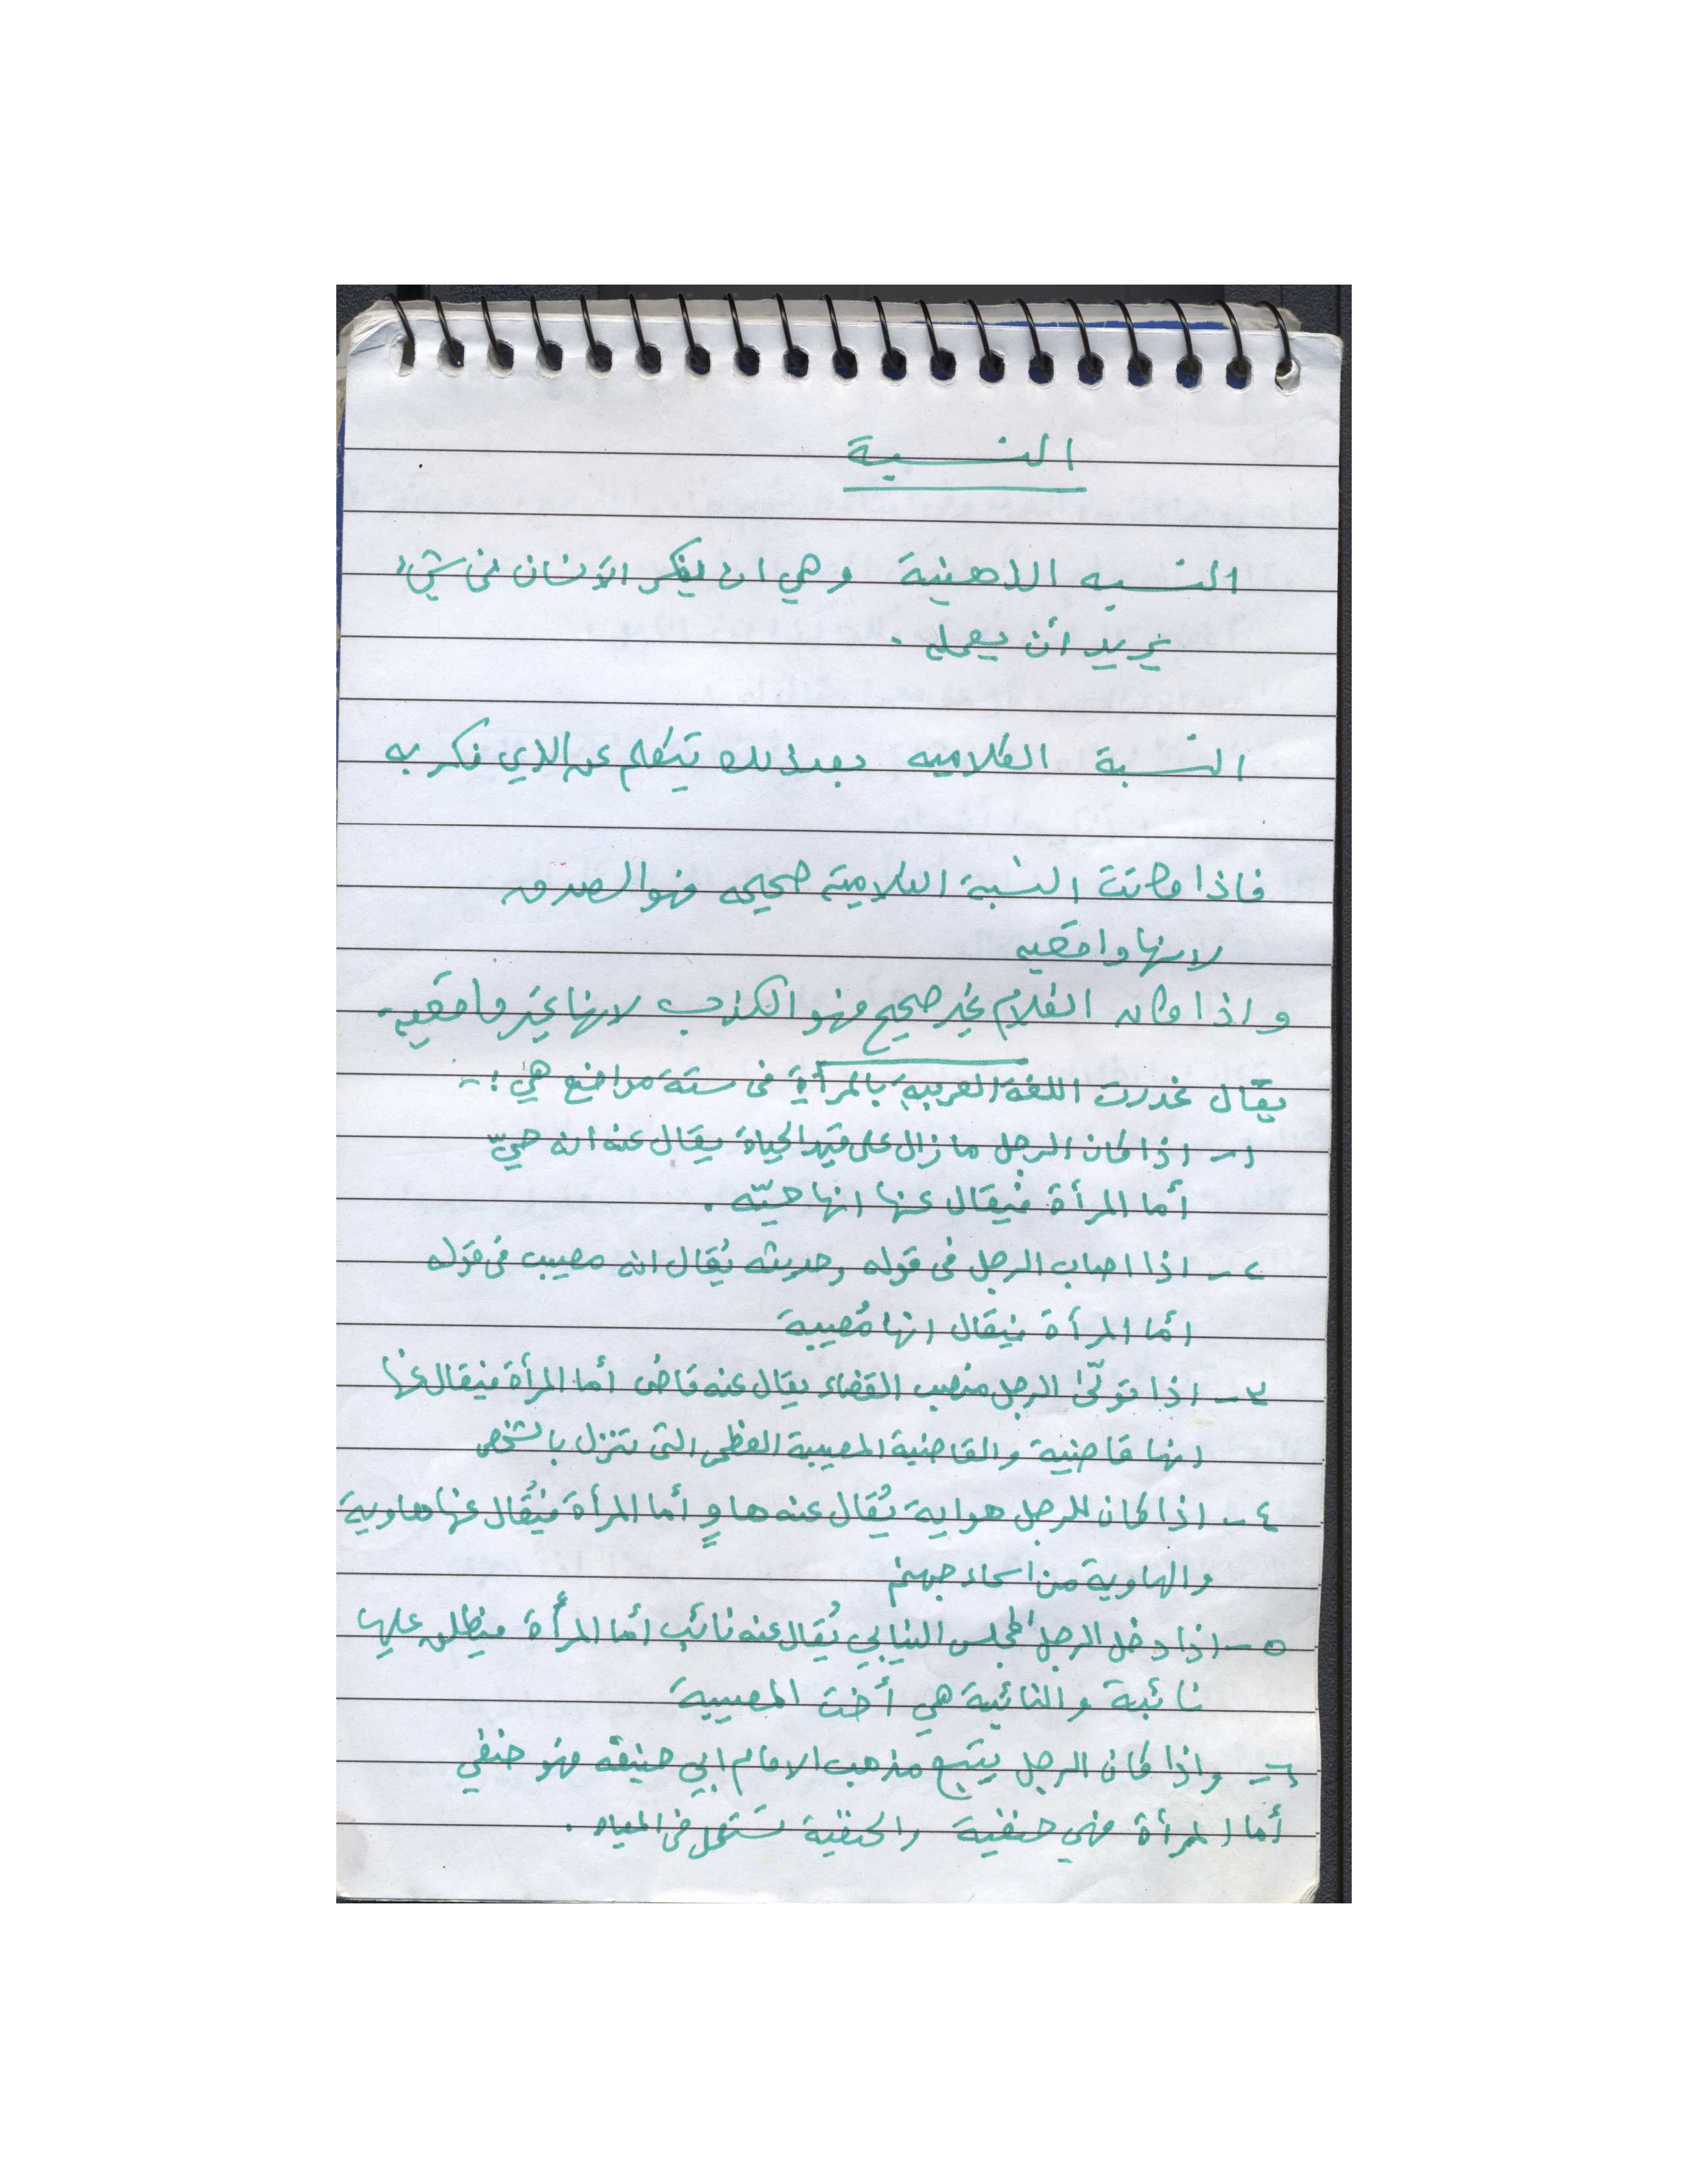 النسبة
النسبه الذهنية وهي ان يفكر الانسان في شيء
يريد أن يعمله .
النسبة الكلاميه بعد ذلك تتكلم عن الذي فكر به
فاذا كانت النسبة الكلامية صحيحه فهو الصدق
لانها واقعيه
واذا كان الكلام غير صحيح فهو الكذب لانها غير واقعيه
يقال غدرت اللغة العربية بالمرأة في ستة مواضع هي :-
١- اذا كان الرجل ما زال على قيد الحياة يقال عنه انه حيّ
أما المرأة فيقال عنها انها حيّه .
٢- اذا اصاب الرجل في قوله وحديثه يُقال انه مصيب في قوله
امّا المرأة فيقال انها مُصيبة
٣- اذا تولّى الرجل منصب القضاء يقال عنه قاضى أما المرأة فيقال عنها
انها قاضية والقاضية المصيبة العظمى التي تنزل بالشخص
٤- اذا كان للرجل هواية يُقال عنه هاوٍ أما المرأة فيُقال عنها هاوية
والهاوية من اسماء جهنم
٥- اذا دخل الرجل المجلس النيابي يُقال عنه نائب أما المرأة فيطلق عليها
نائبة والنائبة هي أخت المصيبة
٦- واذا كان الرجل يتبع مذهب الامام ابي حنيفه فهو حنفي
أما المرأة فهي حنفية والحنفية تستعمل في المياه .